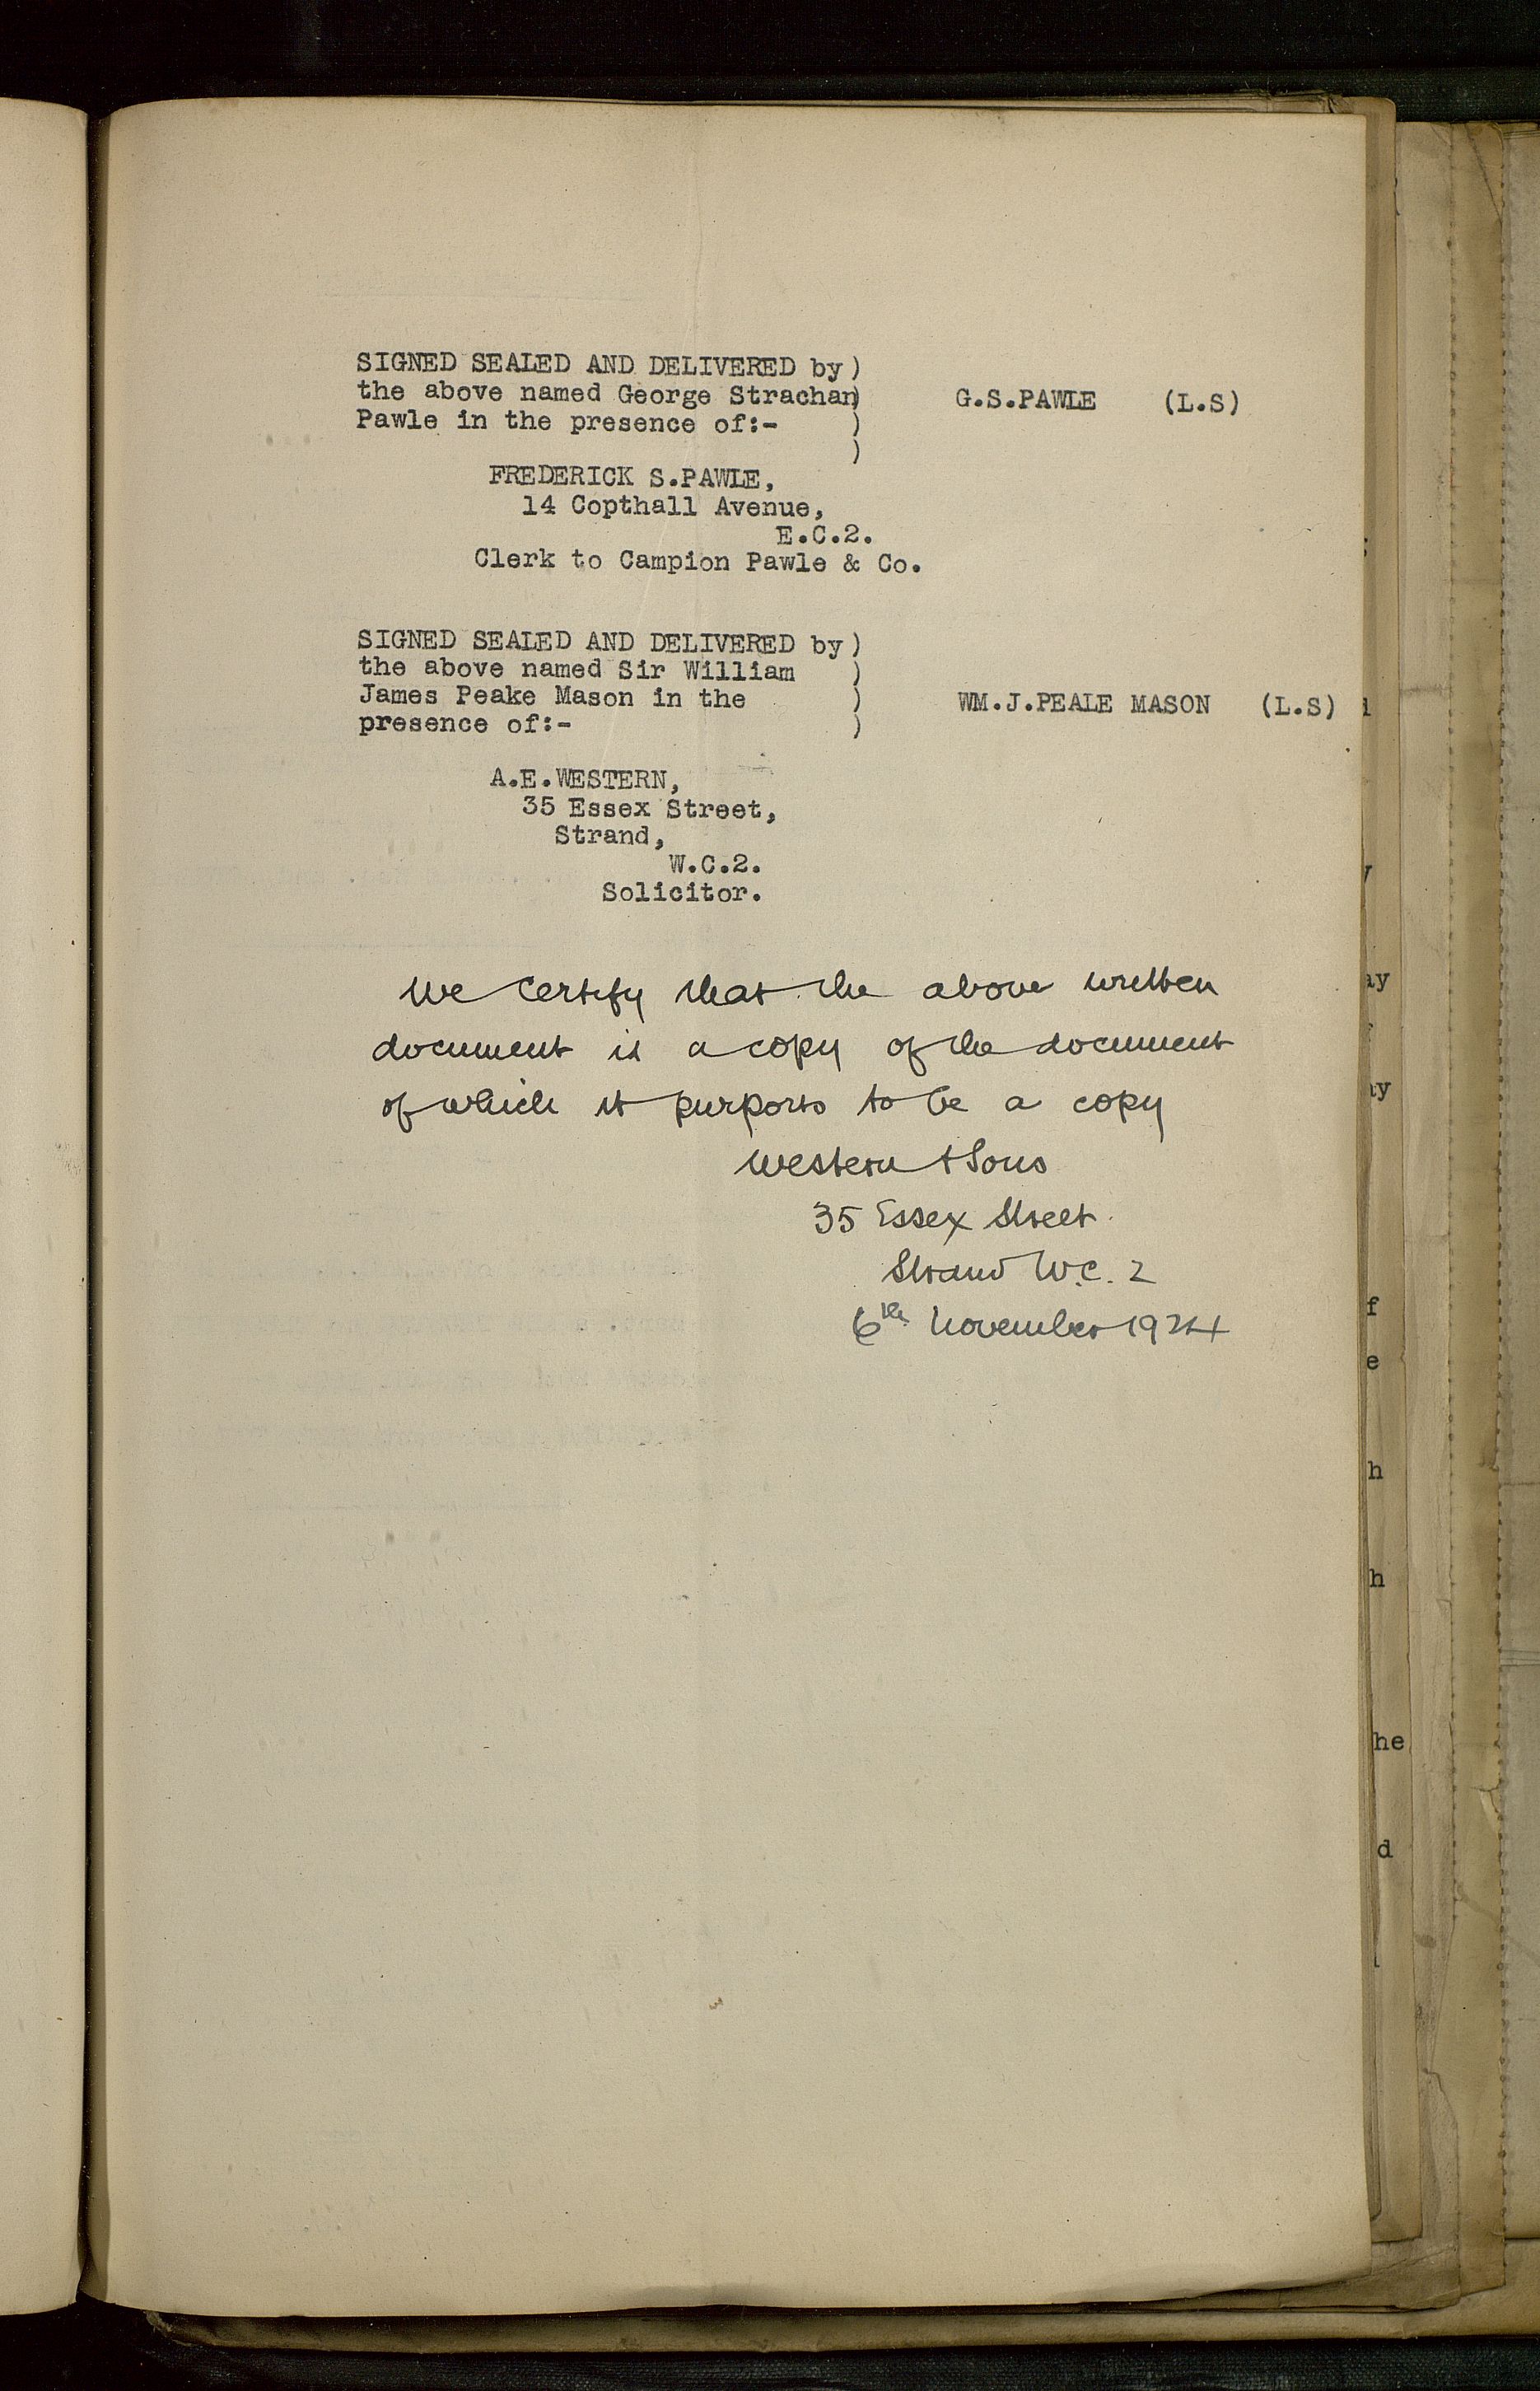 SIGNED SEALED AND DELIVERED by)
the above named George Strachan)
Pawle in the presence of:- )
)
G.S.PAWLE (L.S)
FREDERICK S.PAWLE,
14 Copthall Avenue,
E.C.2.
Clerk to Campion Pawle & Co.
SIGNED SEALED AND DELIVERED by)
the above named Sir William )
James Peake Mason in the )
presence of:- )
WM.J.PEALE MASON (L.S)
A.E.WESTERN,
35 Essex Street,
Strand,
W.C.2.
Solicitor.
We certify that the above written
document is a copy of the document
of which it purports to be a copy
Western & Sons
35 Essex Street.
Strand W.C. 2
6th November 1924
ay
ay
f
e
h
h
he
d